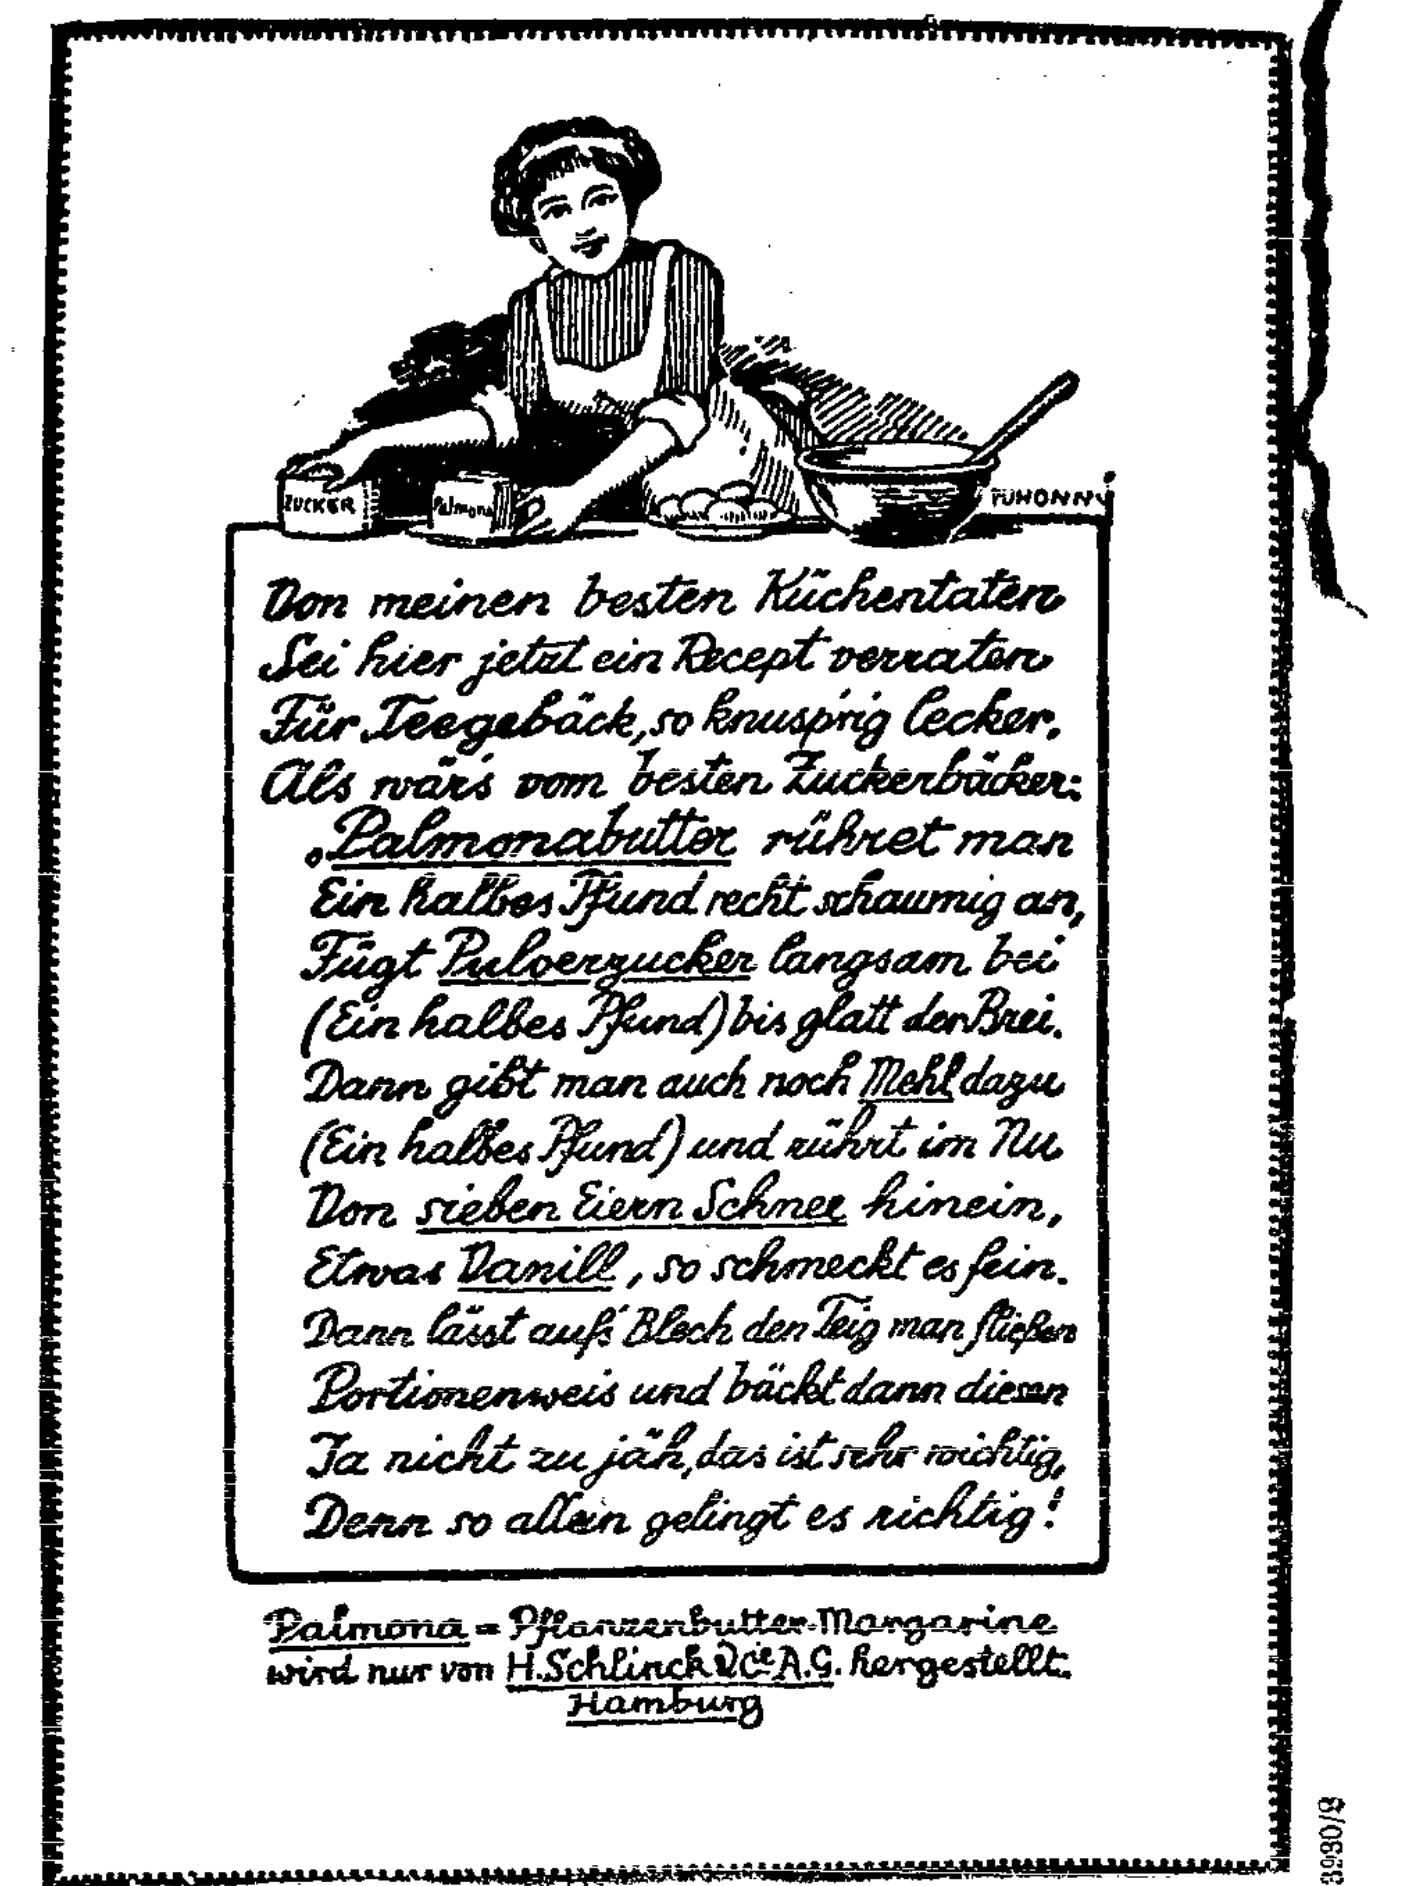 ZUCKER
Palmona
TUHONNY
Von meinen besten Küchentaten
Sei hier jetzt ein Recept verraten
Für Teegebäck, so knusp'rig lecker,
Als wär's vom besten Zuckerbäcker:
„Palmonabutter rühret man
Ein halbes Pfund recht schaumig an,
Fügt Pulverzucker langsam bei
(Ein halbes Pfund) bis glatt der Brei.
Dann gibt man auch noch Mehl dazu
(Ein halbes Pfund) und rührt im Nu
Von sieben Eiern Schnee hinein,
Etwas Vanill, so schmeckt es fein.
Dann lässt aufs' Blech den Teig man fließen
Portionenweis und bäckt dann diesen
Ja nicht zu jäh, das ist sehr wichtig,
Denn so allein gelingt es richtig!
Palmona = Pflanzenbutter-Margarine
wird nur von H. Schlinck & Cie A.G. hergestellt.
Hamburg
3930/8